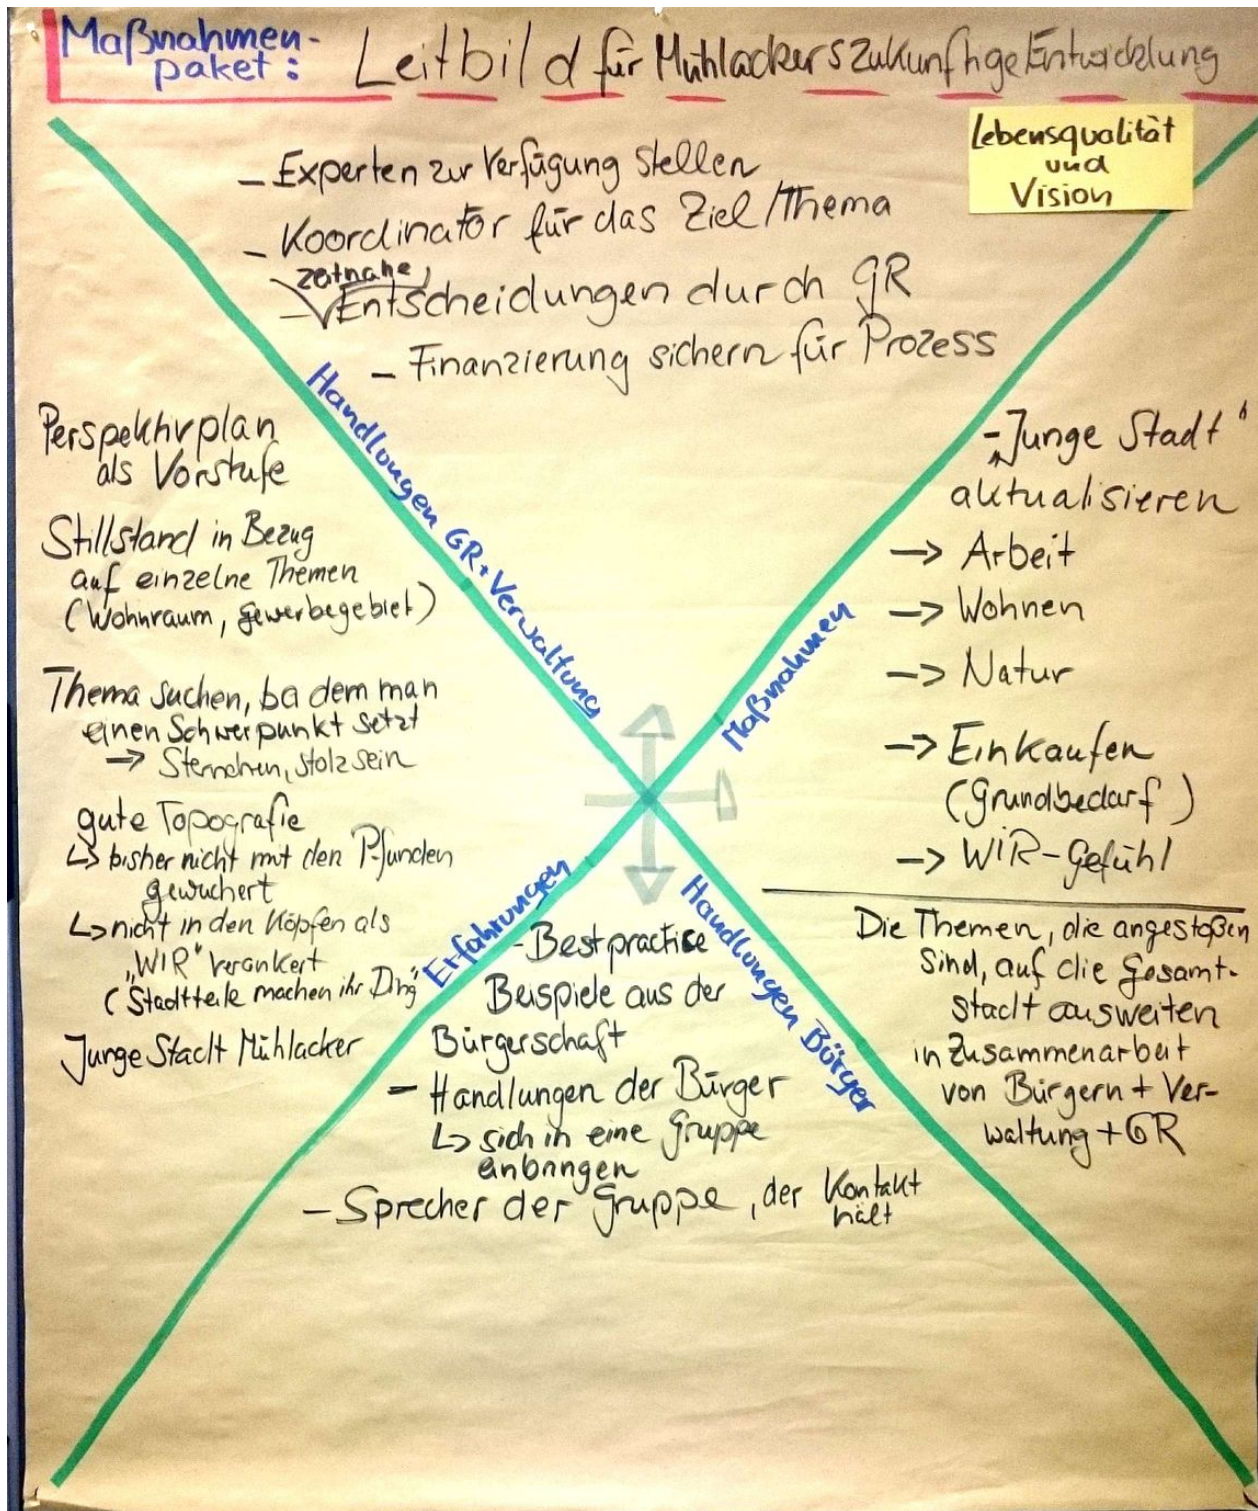 Maßnahmen-
paket:
Leitbild für Mühlackers zukünftige Entwicklung
Lebensqualität
und
Vision
- Experten zur Verfügung stellen
- Koordinator für das Ziel/Thema
zeitnahe
- Entscheidungen durch GR
- Finanzierung sichern für Prozess
Handlungen GR + Verwaltung
Perspektivplan
als Vorstufe
Stillstand in Bezug
auf einzelne Themen
(Wohnraum, Gewerbegebiet)
Thema suchen, bei dem man
einen Schwerpunkt setzt
→ Sternchen, stolz sein
gute Topografie
↳ bisher nicht mit den Pfunden
gewuchert
↳ nicht in den Köpfen als
„WIR" verankert
(Stadtteile machen ihr Ding"
Junge Stadt Mühlacker
Erfahrungen
Maßnahmen
- „Junge Stadt"
aktualisieren
→ Arbeit
→ Wohnen
→ Natur
→ Einkaufen
(Grundbedarf)
→ WIR-Gefühl
Die Themen, die angestoßen
sind, auf die Gesamt-
stadt ausweiten
in Zusammenarbeit
von Bürgern + Ver-
waltung + GR
Handlungen Bürger
- Best practice
Beispiele aus der
Bürgerschaft
- Handlungen der Bürger
↳ sich in eine Gruppe
einbringen
- Sprecher der Gruppe, der Kontakt
hält